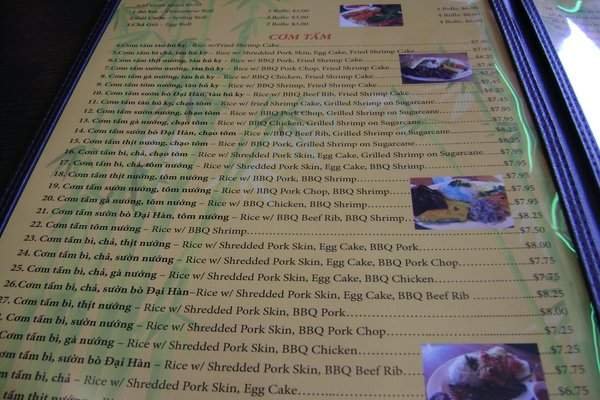 Egg Roll
2 Rolls: $3.00
CƠM TẤM
Cơm tấm tàu hủ ky - Rice w/Fried Shrimp Cake
5.Cơm tấm bì chả, tàu hủ ky - Rice w/ Shredded Pork Skin, Egg Cake, Fried Shrimp Cake
6.Cơm tấm thịt nướng, tàu hủ ky - Rice w/ BBQ Pork, Fried Shrimp Cake
7.Cơm tấm sườn nướng, tàu hủ ky - Rice w/ BBQ Pork Chop, Fried Shrimp Cake
8. Cơm tấm gà nướng, tàu hủ ky - Rice w/ BBQ Chicken, Fried Shrimp Cake
9. Cơm tấm tôm nướng, tàu hủ ky - Rice w/ BBQ Shrimp, Fried Shrimp Cake
10. Cơm tấm sườn bò Đại Hàn, tàu hủ ky - Rice w/ BBQ Beef Rib, Fried Shrimp Cake
11. Cơm tấm tàu hủ ky, chạo tôm - Rice w/ fried Shrimp Cake, Grilled Shrimp on Sugarcane
12. Cơm tấm sườn nướng, chạo tôm - Rice w/ BBQ Pork Chop, Grilled Shrimp on Sugarcane
13. Cơm tấm gà nướng, chạo tôm - Rice w/ BBQ Chicken, Grilled Shrimp on Sugarcane $7.95
14. Cơm tấm sườn bò Đại Hàn, chạo tôm -Rice w/BBQ Beef Rib, Grilled Shrimp on Sugarcane
15. Cơm tấm thịt nướng, chạo tôm - Rice w/ BBQ Pork, Grilled Shrimp on Sugarcane
16. Cơm tấm bì, chả, chạo tôm - Rice w/ Shredded Pork Skin, Egg Cake, Grilled Shrimp on Sugarcane $7.95
17. Cơm tấm bì, chả, tôm nướng - Rice w/ Shredded Pork Skin, Egg Cake, BBQ Shrimp $7.95
18. Cơm tấm thịt nướng, tôm nướng - Rice w/ BBQ Pork, BBQ Shrimp $7.95
19. Cơm tấm sườn nướng, tôm nướng - Rice w/ BBQ Pork Chop, BBQ Shrimp $7.95
20. Cơm tấm gà nướng, tôm nướng - Rice w/ BBQ Chicken, BBQ Shrimp $7.95
21. Cơm tấm sườn bò Đại Hàn, tôm nướng - Rice w/ BBQ Beef Rib, BBQ Shrimp $8.25
22. Cơm tấm tôm nướng - Rice w/ BBQ Shrimp $7.50
23. Cơm tấm bì, chả, thịt nướng - Rice w/ Shredded Pork Skin, Egg Cake, BBQ Pork $8.00
24. Cơm tấm bì, chả, sườn nướng - Rice w/ Shredded Pork Skin, Egg Cake, BBQ Pork Chop $7.75
25. Cơm tấm bì, chả, gà nướng - Rice w/ Shredded Pork Skin, Egg Cake, BBQ Chicken $7.75
26.Cơm tấm bì, chả, sườn bò Đại Hàn-Rice w/ Shredded Pork Skin, Egg Cake, BBQ Beef Rib $8.25
27. Cơm tấm bì, thịt nướng - Rice w/ Shredded Pork Skin, BBQ Pork $8.00
Cơm tấm bì, sườn nướng - Rice w/ Shredded Pork Skin, BBQ Pork Chop $7.25
Cơm tấm bì, gà nướng - Rice w/ Shredded Pork Skin, BBQ Chicken $7.25
ơm tấm bì, sườn bò Đại Hàn - Rice w/ Shredded Pork Skin, BBQ Beef Rib $7.75
tấm bì, chả - Rice w/ Shredded Pork Skin, Egg Cake $6.75